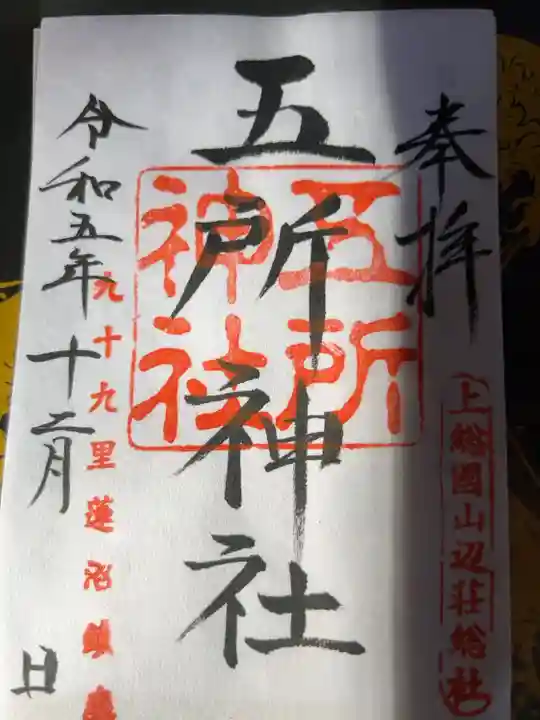 奉拝
上総国山辺荘総社
五所神社
五所神社
九十九里蓮沼鎮座
令和五年十二月 日